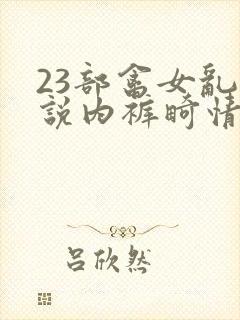 23部畲女乱
説内裤畸情
吕欣然